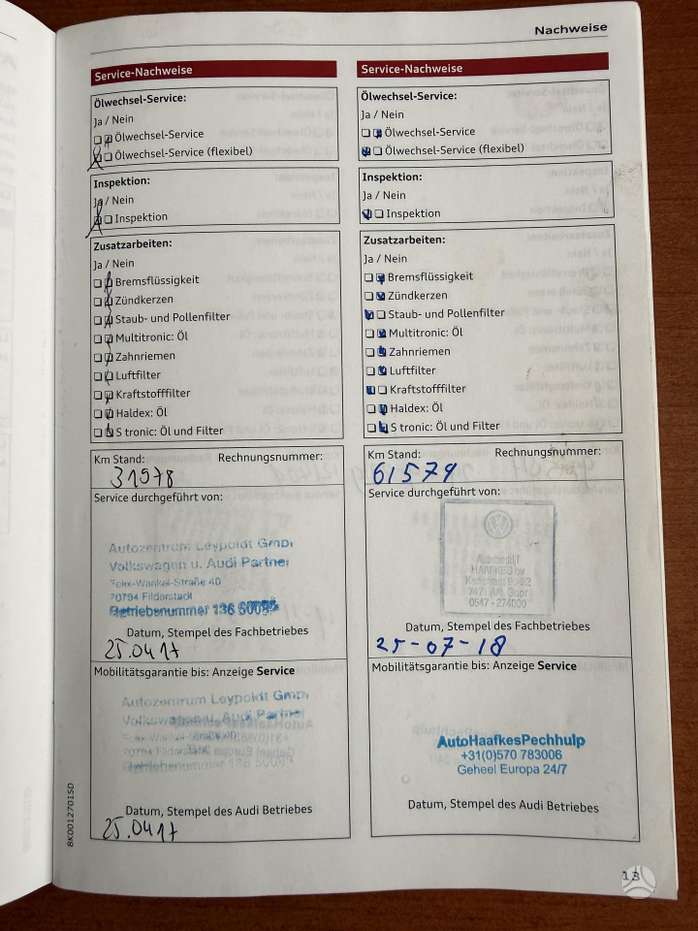 Nachweise
Service-Nachweise
Ölwechsel-Service:
Ja / Nein
Ölwechsel-Service
Ölwechsel-Service (flexibel)
Inspektion:
Ja / Nein
Inspektion
Zusatzarbeiten:
Ja / Nein
Bremsflüssigkeit
Zündkerzen
Staub- und Pollenfilter
Multitronic: Öl
Zahnriemen
Luftfilter
Kraftstofffilter
Haldex: Öl
S tronic: Öl und Filter
Km Stand: Rechnungsnummer:
31978
Service durchgeführt von:
Autozentrum Leypoldt GmbH
Volkswagen u. Audi Partner
Felix-Wankel-Straße 40
70794 Filderstadt
Betriebsnummer 136
Datum, Stempel des Fachbetriebes
25.04.17
Mobilitätsgarantie bis: Anzeige Service
Autozentrum Leypoldt GmbH
Volkswagen u. Audi Partner
70794 Filderstadt
Betriebsnummer 136
Datum, Stempel des Audi Betriebes
25.04.17
Service-Nachweise
Ölwechsel-Service:
Ja / Nein
Ölwechsel-Service
Ölwechsel-Service (flexibel)
Inspektion:
Ja / Nein
Inspektion
Zusatzarbeiten:
Ja / Nein
Bremsflüssigkeit
Zündkerzen
Staub- und Pollenfilter
Multitronic: Öl
Zahnriemen
Luftfilter
Kraftstofffilter
Haldex: Öl
S tronic: Öl und Filter
Km Stand: Rechnungsnummer:
61579
Service durchgeführt von:
0547 - 274000
Datum, Stempel des Fachbetriebes
25-07-18
Mobilitätsgarantie bis: Anzeige Service
AutoHaafkesPechhulp
+31(0)570 783006
Geheel Europa 24/7
Datum, Stempel des Audi Betriebes
8K0012701SD
13